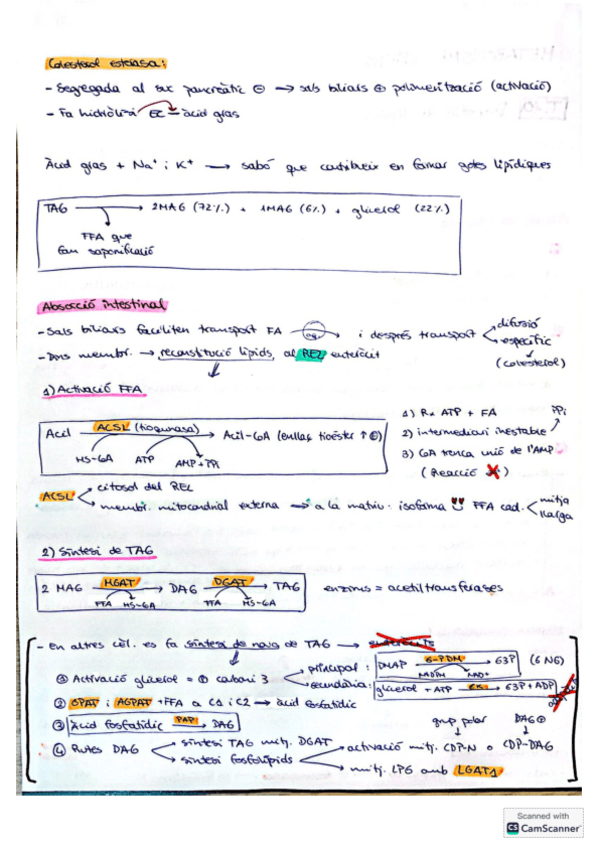 Colesterol esterasa:
- Segregada al suc pancreàtic ⊖ → sals biliars ⊕ polimerització (activació)
- Fa hidròlisi EC - àcid gras
Àcid gras + Na⁺ i K⁺ → sabó que contribueix en formar gotes lipídiques
TAG → 2MAG (72%) + 1MAG (6%) + glicerol (22%)
FFA que
fan saponificació
Absorció intestinal
- Sals biliars faciliten transport FA → i després transport
difusió
específic
(colesterol)
- Dins membr. → reconstitució lípids, al REL enteròcit
1) Activació FFA
Acil ACSL (tioquinasa) → Acil-CoA (enllaç tioèster ↑ⓔ)
HS-CoA ATP AMP+PPi
1) Rx ATP + FA PPi
2) intermediari inestable
3) CoA trenca unió de l'AMP
(Reacció X)
ACSL
citosol del REL
membr. mitocondrial externa → a la matriu. isoforma FFA cad.
mitja
llarga
2) Síntesi de TAG
2 MAG MGAT → DAG DGAT → TAG
FFA HS-CoA FFA HS-CoA
enzims = acetiltransferases
- En altres cèl. es fa síntesi de novo de TAG →
① Activació glicerol = ⓟ carboni 3
principal: DHAP G-PDH → G3P (6 NG)
NADPH NAD+
secundària: glicerol + ATP GK → G3P + ADP
② GPAT i AGPAT + FFA a C1 i C2 → àcid fosfatídic
③ Àcid fosfatídic PAP → DAG
④ Rutes DAG
síntesi TAG mitj. DGAT
síntesi fosfolípids
grup polar DAG
activació mitj. CDP-N o CDP-DAG
mitj. LPG amb LGAT1
Scanned with
CS CamScanner